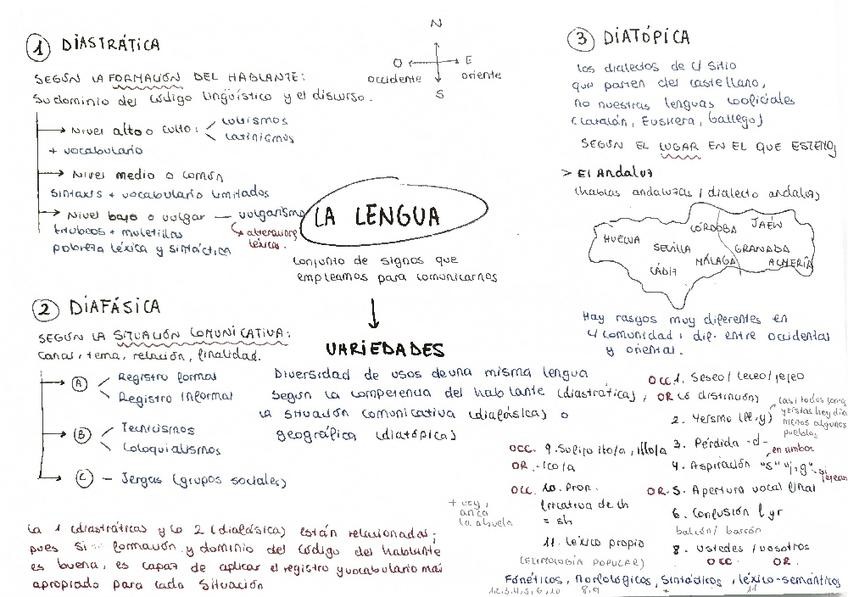 1 DIASTRÁTICA
SEGÚN LA FORMACIÓN DEL HABLANTE:
Su dominio del código lingüístico y el discurso.
Nivel alto o culto:
cultismos
latinismos
+ vocabulario
Nivel medio o común
Sintaxis + vocabulario limitados
Nivel bajo o vulgar — vulgarismos
titubeos + muletillas
aberraciones léxicas.
pobreza léxica y sintáctica
N
O
E
occidente
oriente
S
LA LENGUA
conjunto de signos que
empleamos para comunicarnos
VARIEDADES
Diversidad de usos de una misma lengua
según la competencia del hablante (diastrática),
la situación comunicativa (diafásica) o
geográfica (diatópica)
2 DIAFÁSICA
SEGÚN LA SITUACIÓN COMUNICATIVA:
canal, tema, relación, finalidad.
A
Registro formal
Registro informal
B
Tecnicismos
Coloquialismos
C – Jergas (grupos sociales)
La 1 (diastrática) y la 2 (diafásica) están relacionadas,
pues si formación y dominio del código del hablante
es buena, es capaz de aplicar el registro y vocabulario más
apropiado para cada situación
3 DIATÓPICA
los dialectos de c/ sitio
que parten del castellano,
no nuestras lenguas cooficiales
(catalán, Euskera, Gallego)
SEGÚN EL LUGAR EN EL QUE ESTEMOS
> El Andaluz
(hablas andaluzas / dialecto andaluz)
HUELVA
SEVILLA
CÓRDOBA
JAÉN
CÁDIZ
MÁLAGA
GRANADA
ALMERÍA
Hay rasgos muy diferentes en
c/ comunidad, dif. entre occidental
y oriental.
OCC 1. Seseo / ceceo / jejeo
OR (distinción)
2. Yeísmo (ll, y)
(casi todos somos yeístas hoy día menos algunos pueblos
3. Pérdida -d-
en ambos
4. Aspiración "s" "j, g"
OR. 5. Apertura vocal final
6. Confusión l y r
balcón / barcón
8. ustedes / vosotros
OCC. OR.
OCC. 9. Sufijo ito/a, illo/a
OR. - ico/a
OCC. 10. Pron.
fricativa de ch
= sh
11. Léxico propio
(ETIMOLOGÍA POPULAR)
la abuela
Fonéticos, Morfológicos, Sintácticos, léxico-semánticos
1,2,3,4,5,6,10 8,9 11